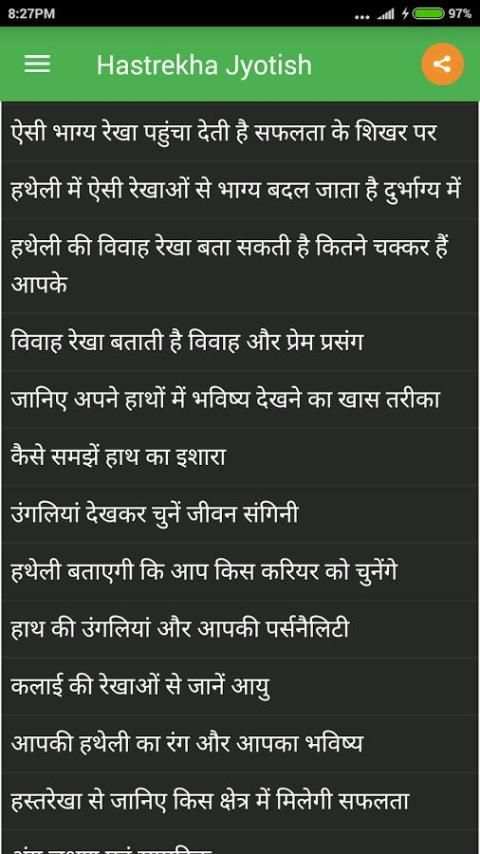 8:27PM
97%
Hastrekha Jyotish
ऐसी भाग्य रेखा पहुंचा देती है सफलता के शिखर पर
हथेली में ऐसी रेखाओं से भाग्य बदल जाता है दुर्भाग्य में
हथेली की विवाह रेखा बता सकती है कितने चक्कर हैं
आपके
विवाह रेखा बताती है विवाह और प्रेम प्रसंग
जानिए अपने हाथों में भविष्य देखने का खास तरीका
कैसे समझें हाथ का इशारा
उंगलियां देखकर चुनें जीवन संगिनी
हथेली बताएगी कि आप किस करियर को चुनेंगे
हाथ की उंगलियां और आपकी पर्सनैलिटी
कलाई की रेखाओं से जानें आयु
आपकी हथेली का रंग और आपका भविष्य
हस्तरेखा से जानिए किस क्षेत्र में मिलेगी सफलता